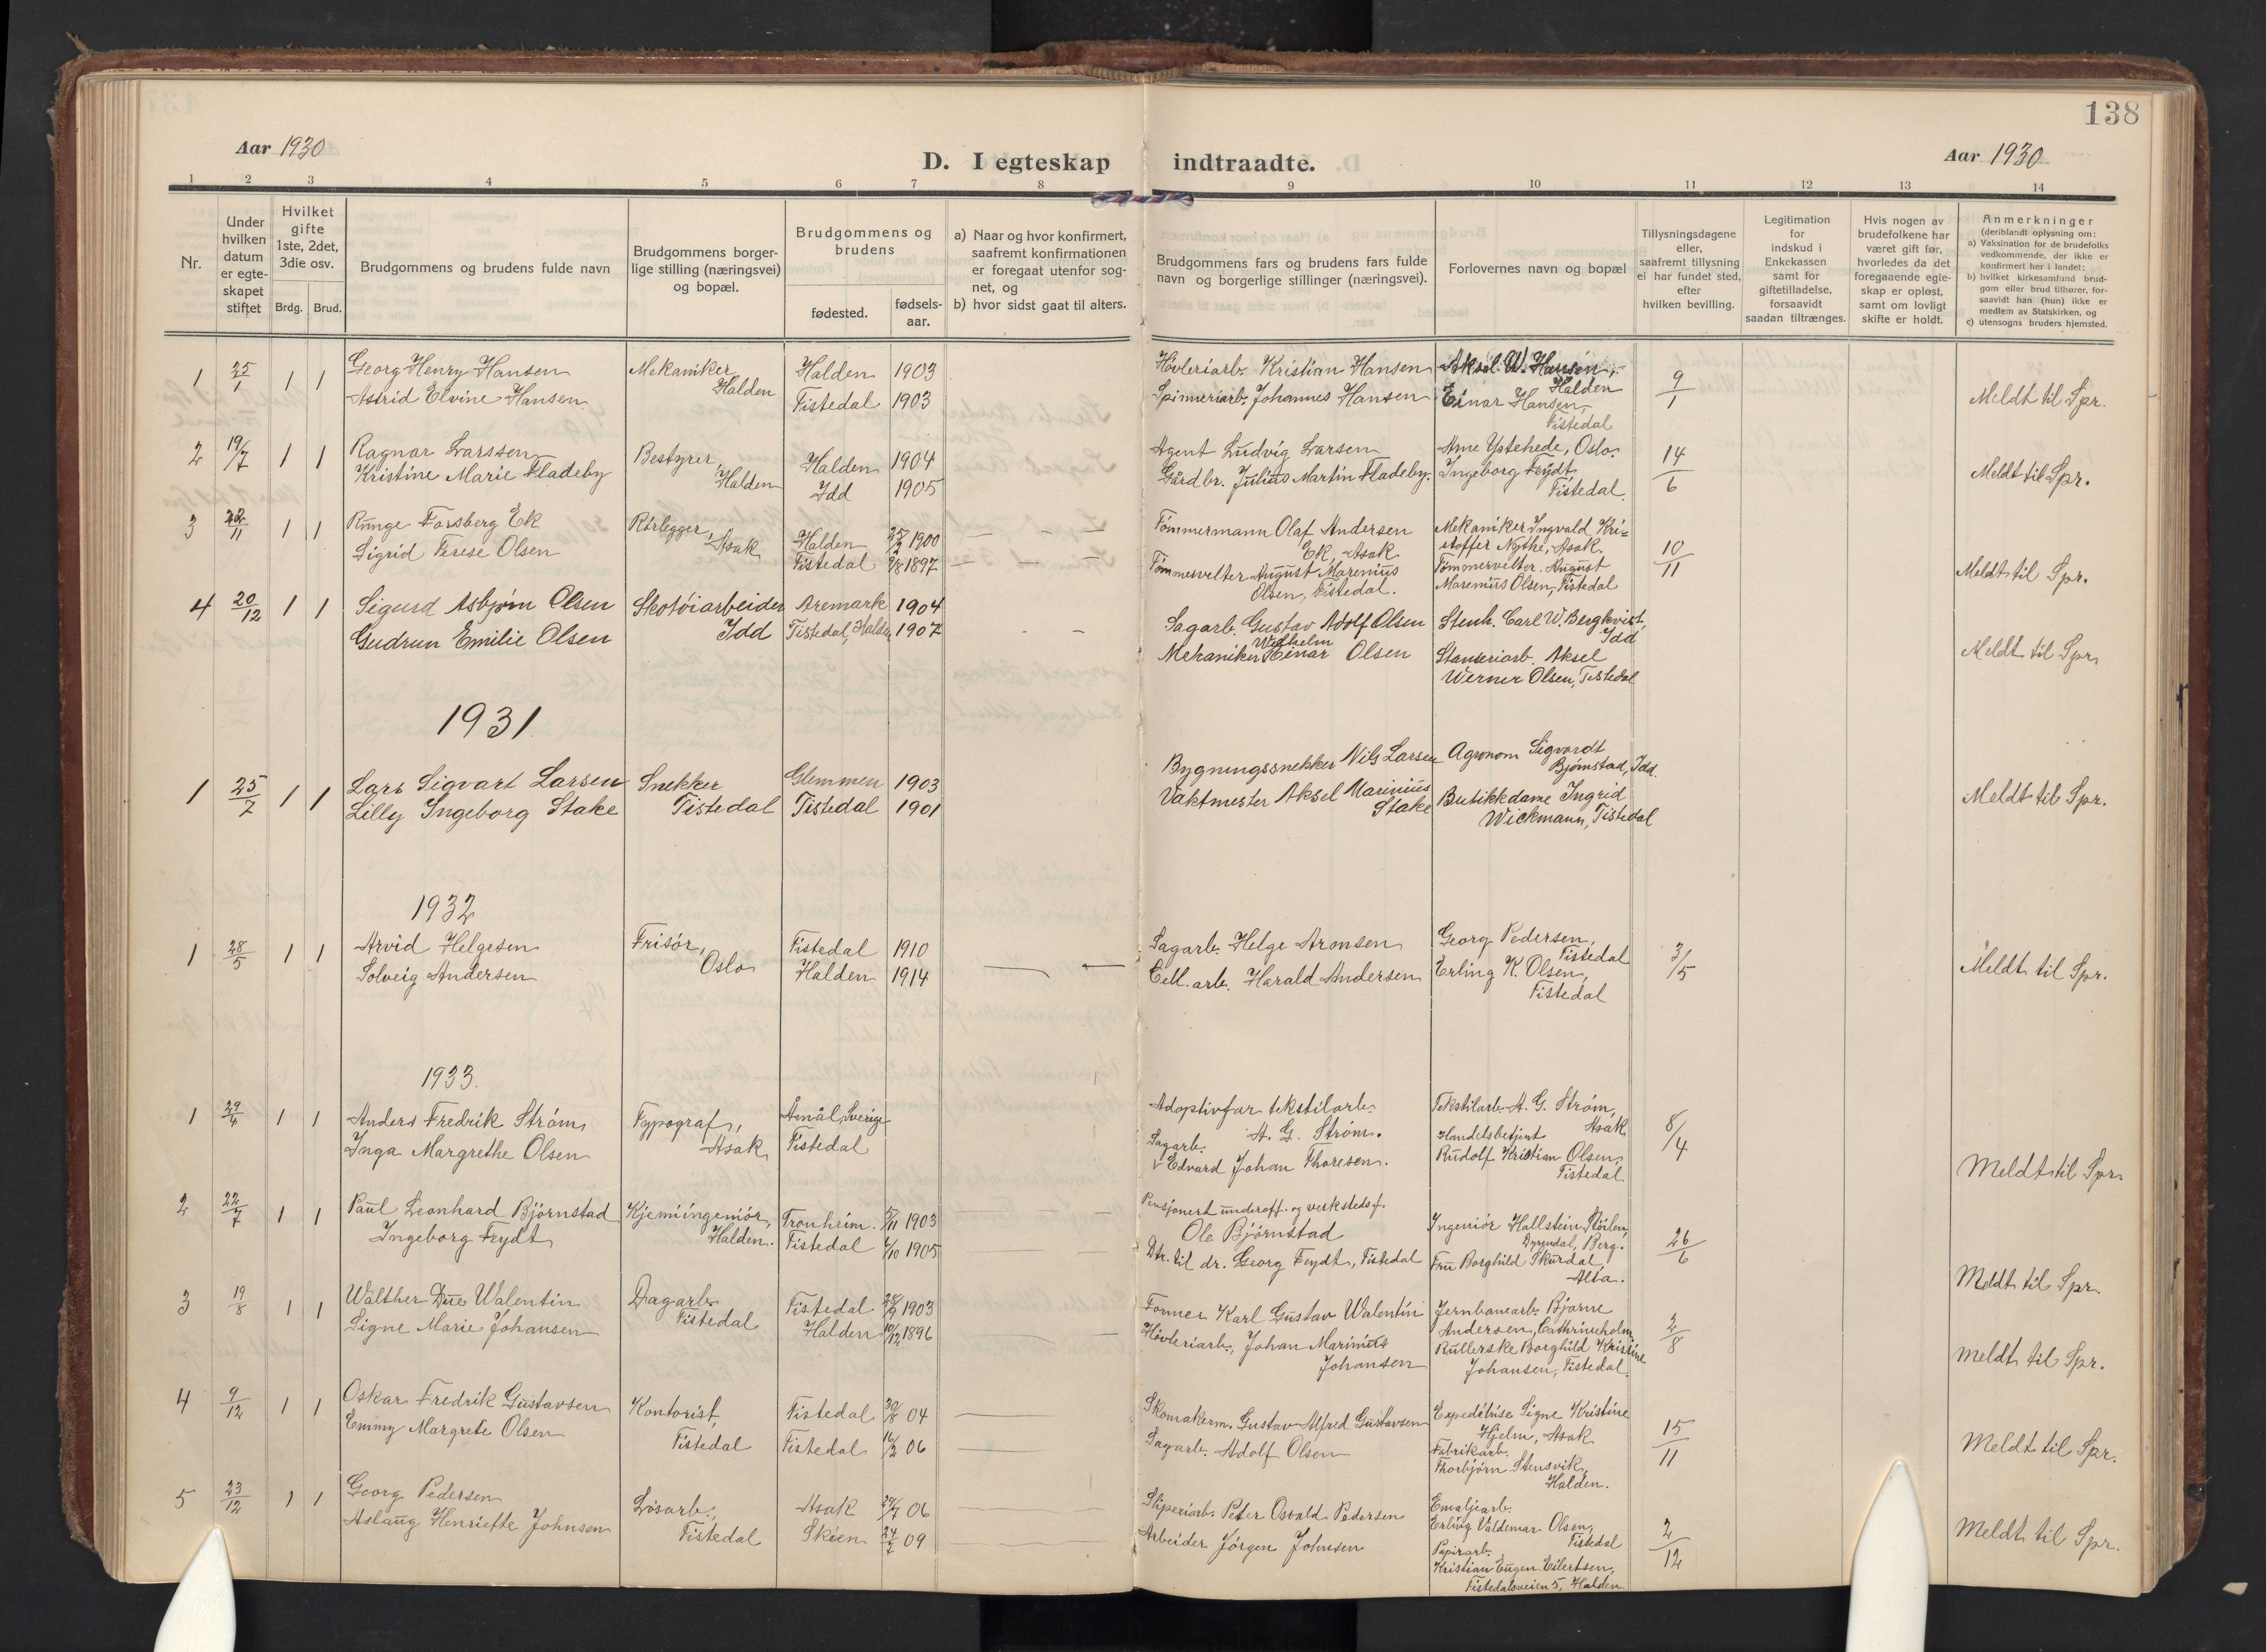 138
Aar 1930
D. I egteskap indtraadte.
Aar 1930
1 2 3 4 5 6 7 8 9 10 11 12 13 14
Nr.
Under hvilken datum er egte-skapet stiftet
Hvilket gifte 1ste, 2det, 3die osv.
Brdg. Brud.
Brudgommens og brudens fulde navn
Brudgommens borger-
lige stilling (næringsvei)
og bopæl.
Brudgommens og brudens
fødested.
fødsels-
aar.
a) Naar og hvor konfirmert,
saafremt konfirmationen
er foregaat utenfor sog-
net, og
b) hvor sidst gaat til alters.
Brudgommens fars og brudens fars fulde
navn og borgerlige stillinger (næringsvei).
Forlovernes navn og bopæl
Tillysningsdagene
eller,
saafremt tillysning
ei har fundet sted,
efter
hvilken bevilling.
Legitimation
for
indskud i
Enkekassen
samt for
giftetilladelse,
forsaavidt
saadan tiltrænges.
Hvis nogen av
brudefolkene har
været gift før,
hvorledes da det
foregaaende egte-
skap er opløst,
samt om lovligt
skifte er holdt.
Anmerkninger
(deriblandt oplysning om:
a) Vaksination for de brudefolks
vedkommende, der ikke er
konfirmert her i landet;
b) hvilket kirkesamfund brud-
gom eller brud tilhører, for-
saavidt han (hun) ikke er
medlem av Statskirken, og
c) utensogns bruders hjemsted.
1 25/1 1 1 Georg Henry Hansen Mekaniker Halden 1903 Høvleriarb. Kristian Hansen Aksel W. Hansen, 9/1
Astrid Elvine Hansen Halden Tistedal 1903 Spinneriarb. Johannes Hansen Halden Meldt til Spr.
Einar Hansen,
Tistedal
2 19/7 1 1 Ragnar Larssen Bestyrer, Halden 1904 Agent Ludvig Larsen Arne Ystehede, Oslo. 14/6
Kristine Marie Fladeby Halden Idd 1905 Gårdbr. Julius Martin Fladeby. Ingeborg Feydt Meldt til Spr.
Tistedal.
3 22/11 1 1 Runge Forsberg Ek Rørlegger, Halden 25/2 1900 Tømmermann Olaf Andersen Mekaniker Ingvald Kri-
Sigrid Terese Olsen Asak Tistedal 9/8 1897 Ek, Asak stoffer Nythe, Asak. 10/11
Tømmervelter August Marenius Tømmervelter August Meldt til Spr.
Olsen, Tistedal. Marenius Olsen, Tistedal
4 20/12 1 1 Sigurd Asbjørn Olsen Skotøiarbeider Aremark 1904 Sagarb. Gustav Adolf Olsen Stenh. Carl W. Bergkvist,
Gudrun Emilie Olsen Idd Tistedal, Halden 1907 Mekaniker Wilhelm Einar Olsen Idd
Stanseriarb. Aksel Meldt til Spr.
Werner Olsen, Tistedal
1931
1 25/7 1 1 Lars Sigvart Larsen Snekker Glemmen 1903 Bygningssnekker Nils Larsen Agronom Sigvardt
Lilly Ingeborg Stake Tistedal Tistedal 1901 Vaktmester Aksel Marinius Bjørnstad, Idd.
Stake Butikkdame Ingrid Meldt til Spr.
Wickmann, Tistedal
1932
1 28/5 1 1 Arvid Helgesen Frisør, Tistedal 1910 Sagarb. Helge Aronsen Georg Pedersen, 3/5
Solveig Andersen Oslo Halden 1914 Cell. arb. Harald Andersen Tistedal Meldt til Spr.
Erling K. Olsen,
Tistedal
1933.
1 29/4 1 1 Anders Fredrik Strøm Typograf, Åmål, Sverige Adoptivfar tekstilarb. Tekstilarb. A. G. Strøm, 8/4
Inga Margrethe Olsen Asak Tistedal A. G. Strøm. Asak
Sagarb. Handelsbetjent
Edvard Johan Thoresen. Rudolf Kristian Olsen,
Tistedal. Meldt til Spr.
2 22/7 1 1 Paul Leonhard Bjørnstad Kjemiingeniør, Tronheim. 5/11 1903 Pensjonert underoff. og verkstedsf.
Ingeborg Feydt Halden. Tistedal /10 1905 Ole Bjørnstad Ingeniør Hallstein
Dyrendal, Berg. 26/6
Dtr. til dr. Georg Feydt, Tistedal Fru Borghild Skurdal,
Alta. Meldt til Spr.
3 19/8 1 1 Walther Due Walentin Dagarb. Tistedal 28/9 1903 Former Karl Gustav Walentin Jernbanearb. Bjarne
Signe Marie Johansen Tistedal Halden 10/12 1896 Høvleriarb. Johan Marinius Andersen, Cathrineholm 2/8
Johansen Rullerske Borghild Kristine
Johansen, Tistedal. Meldt til Spr.
4 9/12 1 1 Oskar Fredrik Gustavsen Kontorist, Tistedal 30/8 04 Skomakerm. Gustav Alfred Gustavsen Expeditrise Signe Kristine
Emmy Margrete Olsen Tistedal Tistedal 16/2 06 Sagarb. Adolf Olsen Hjelm, Asak 15/11
Fabrikarb. Meldt til Spr.
Thorbjørn Stensvik,
Halden.
5 23/12 1 1 Georg Pedersen Løsarb., Asak 29/7 06 Sliperiarb. Peter Osvald Pedersen Emaljearb.
Aslaug Henriette Johnsen Tistedal Skien 24/2 09 Arbeider Jørgen Johnsen Erling Valdemar Olsen, 2/12
Tistedal Meldt til Spr.
Papirarb.
Kristian Eugen Eilertsen,
Tistedalsveien 5, Halden